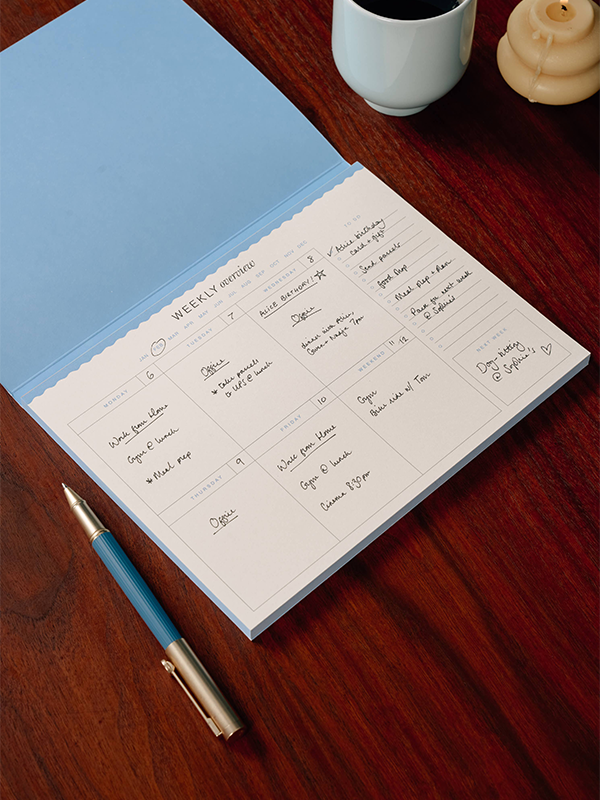 WEEKLY overview
JAN FEB MAR APR MAY JUN JUL AUG SEP OCT NOV DEC
MONDAY 6
Work from Home
Gym @ lunch
* Meal prep
TUESDAY 7
Office
* take parcels
to UPS @ lunch
WEDNESDAY 8
ALICE BIRTHDAY! ☆
Office
dinner with Alice,
7pm
THURSDAY 9
Office
FRIDAY 10
Work from Home
Gym @ lunch
Cinema 8:30pm
WEEKEND 11 12
Gym
Bike ride w/ Tom
TO DO
✓ Alice birthday
card + gift
Send parcels
food shop
Meal prep + plan
Pack for next week
@ Sophie's
NEXT WEEK
Dog-sitting
@ Sophie's ♡